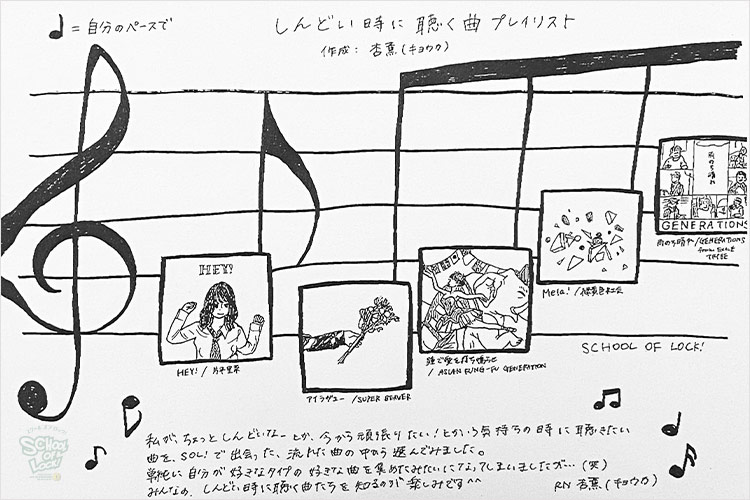 = 自分のペースで
しんどい時に聴く曲プレイリスト
作成: 杏薫(キョウカ)
HEY!
HEY! /
アイラヴユー / SUPER BEAVER
/ ASIAN KUNG-FU GENERATION
Mela! / 緑黄色社会
雨のち晴れ
GENERATIONS
雨のち晴れ / GENERATIONS
from EXILE
TRIBE
SCHOOL OF LOCK!
私が、ちょっとしんどいなーとか、今から頑張りたい!とかいう気持ちの時に聴きたい
曲を、SOL!で出会った、流れた曲の中から選んでみました。
単純に自分が好きなタイプの好きな曲を集めたみたいになってしまいましたが…(笑)
みんなの、しんどい時に聴く曲たちを知るのが楽しみです^^
RN 杏薫(キョウカ)
SCHOOL
OF
LOCK!